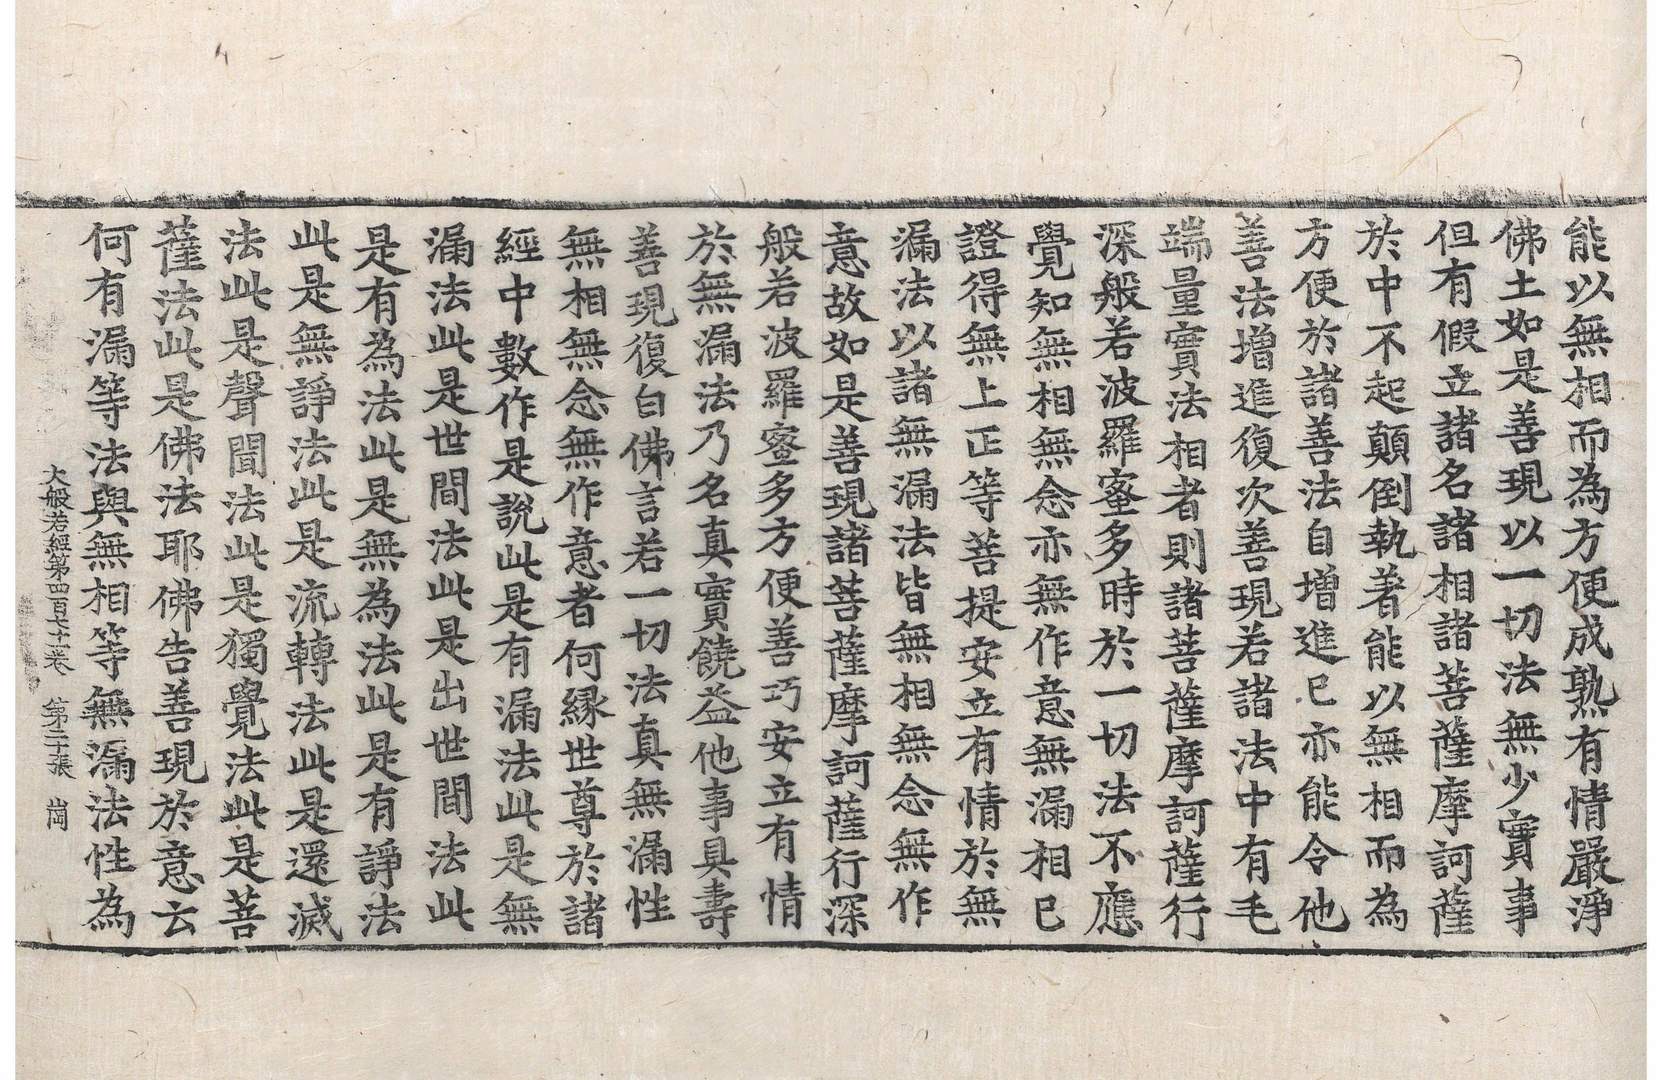 能以無相而為方便成熟有情嚴淨
佛土如是善現以一切法無少實事
但有假立諸名諸相諸菩薩摩訶薩
於中不起顛倒執著能以無相而為
方便於諸善法自增進已亦能令他
善法增進復次善現若諸法中有毛
端量實法相者則諸菩薩摩訶薩行
深般若波羅蜜多時於一切法不應
覺知無相無念亦無作意無漏相已
證得無上正等菩提安立有情於無
漏法以諸無漏法皆無相無念無作
意故如是善現諸菩薩摩訶薩行深
般若波羅蜜多方便善巧安立有情
於無漏法乃名真實饒益他事具壽
善現復白佛言若一切法真無漏性
無相無念無作意者何緣世尊於諸
經中數作是說此是有漏法此是無
漏法此是世間法此是出世間法此
是有為法此是無為法此是有諍法
此是無諍法此是流轉法此是還滅
法此是聲聞法此是獨覺法此是菩
薩法此是佛法耶佛告善現於意云
何有漏等法與無相等無漏法性為
大般若經第四百七十二卷 第二十張 崗